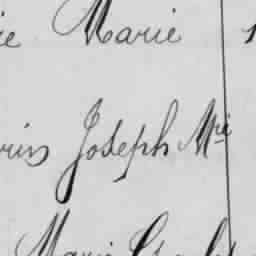 ie Marie 1
rins Joseph Mie
Marie